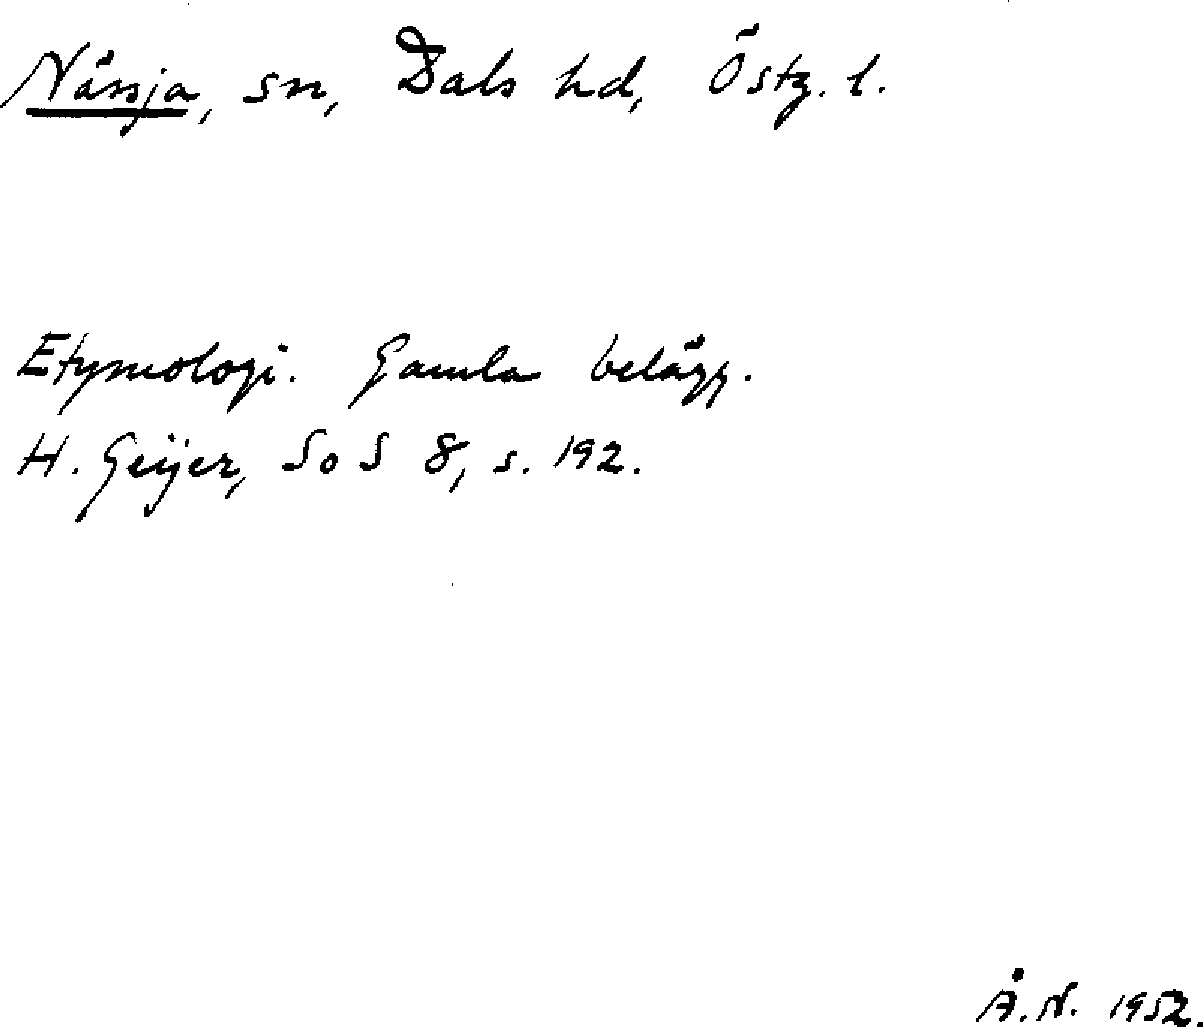 Nässja, sn, Dals hd, Östg. l.
Etymologi. Gamla belägg.
H. Geijer, SoS 8, s. 192.
Å. N. 1952.